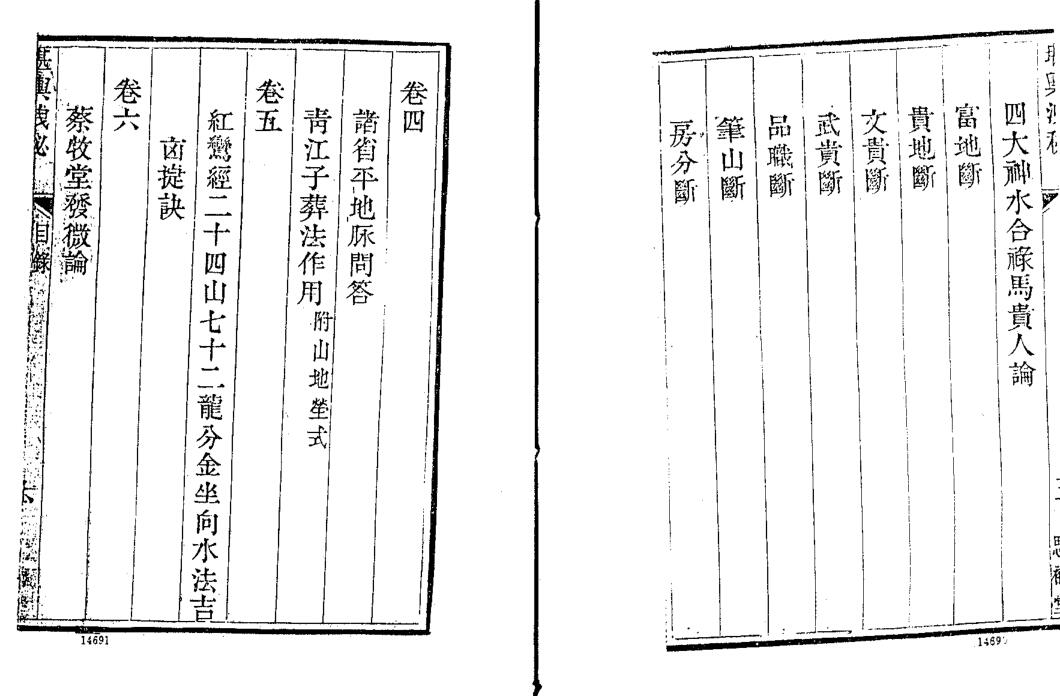 四大神水合祿馬貴人論
富地斷
貴地斷
文貴斷
武貴斷
品職斷
筆山斷
房分斷
14691
卷四
諸省平地脈問答
靑江子葬法作用附山地塋式
卷五
紅鸞經二十四山七十二龍分金坐向水法吉
凶捷訣
卷六
蔡牧堂發微論
堪輿洩秘
目錄
14691